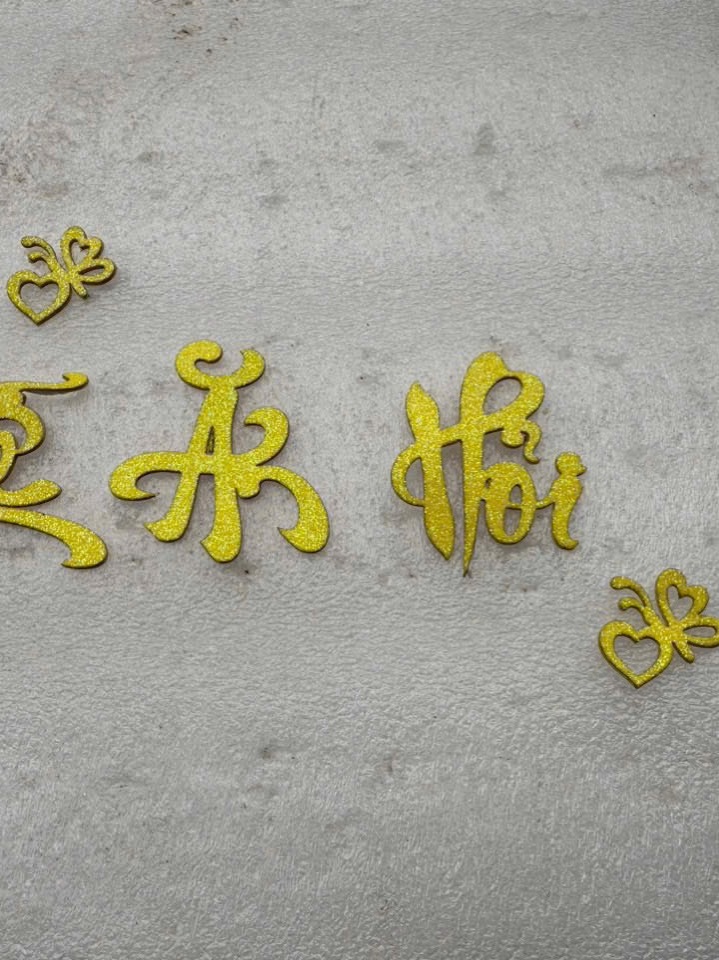 Ăn Hỏi